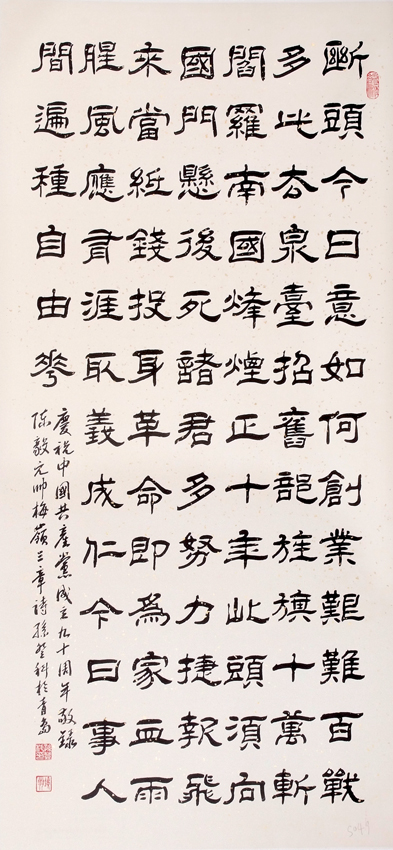 斷頭今日意如何創業艱難百戰
多此去泉臺招舊部旌旗十萬斬
閻羅南國烽煙正十年此頭須向
國門懸後死諸君多努力捷報飛
來當紙錢投身革命即為家血雨
腥風應有涯取義成仁今日事人
間遍種自由花
慶祝中國共產黨成立九十周年敬錄
陳毅元帥梅嶺三章詩孫登科於青島